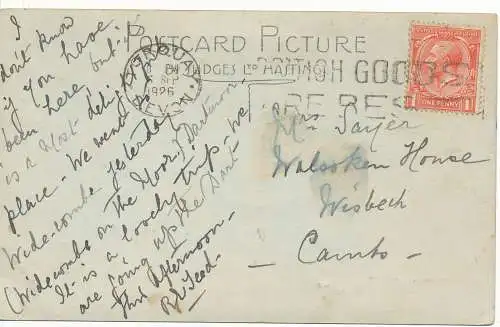 I
don't know
if you have
been here but it
is a most delightful
place - We went
Wide-combe yesterday
(Widecombe on the Moor) Dartmoor
It is a lovely trip. We
are going up the Dart
this afternoon -
POSTCARD PICTURE
JUDGES LTD HASTINGS
TORQUAY
SEP
1926
DEVON
BRITISH GOODS
ARE BEST
ONE PENNY
Mrs Sayer
Walsoken House
Wisbech
- Cambs -